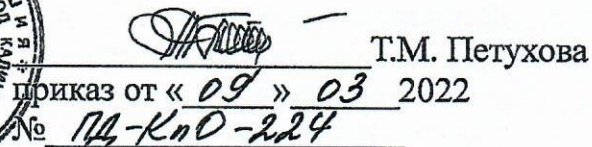 Т.М. Петухова
приказ от « 09 » 03 2022
№ ПД-КпО-224